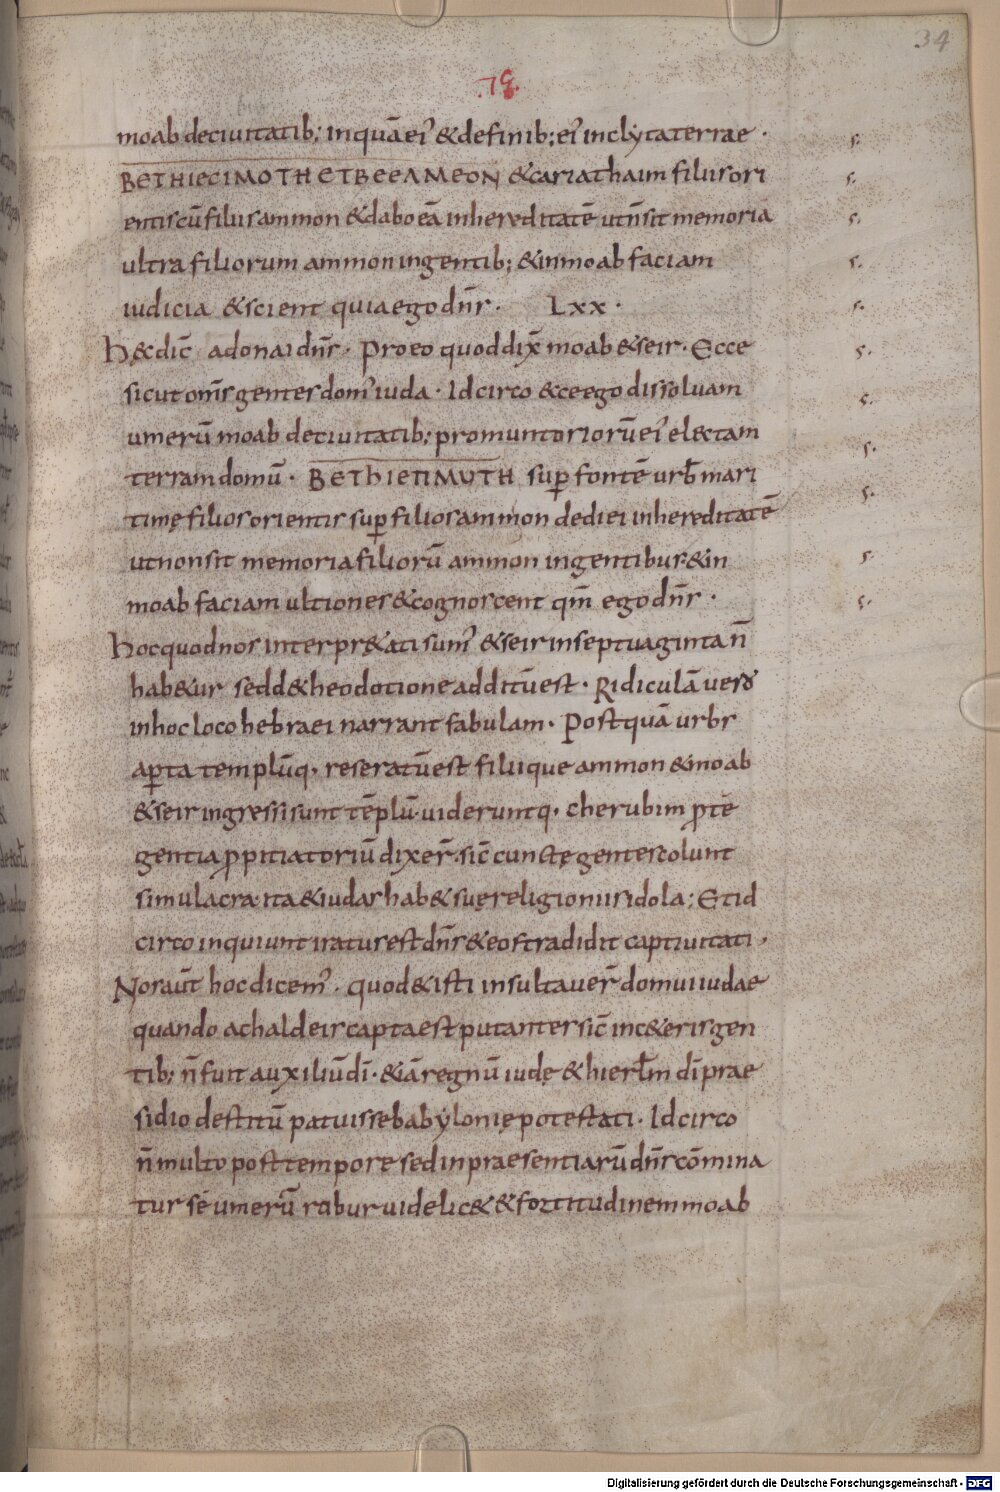 34
moab deciuitatib; inquā ei᾽ &definib; ei᾽ inclyta terrae ·
BETHIECIMOTH ET BEELMEON &cariathaim filiis ori
entis cū filiis ammon &dabo eā in hereditatē ut n̄ sit memoria
ultra filiorum ammon in gentib; &in moab faciam
iudicia &scient quia ego dn̄s · Lxx ·
H&dic̄ adonai dn̄s · Pro eo quod dix̄ moab &seir · Ecce
sicut om̄s gentes dom᾽ iuda · Idcirco &ecce ego dissoluam
umerū moab deciuitatib; promuntoriorū ei᾽ elєctam
terram domū · BETHIETIMUTH sup̱ fontē urb̄ mari
timę filios orientis sup̱ filios ammon dedi ei in hereditatē
ut non sit memoria filiorū ammon in gentibus &in
moab faciam ultiones &cognoscent qm̄ ego dn̄s ·
Hoc quod nos interpr&ati sum᾽ &seir in septuaginta n̄
hab&ur sed d& heodotione additū est · Ridiculā uero
in hoc loco hebraei narrant fabulam · Postquā urbs
ap̱ta templūq· reseratū est filiique ammon &moab
&seir ingressi sunt tēplū· uideruntq· cherubim ꝓte
gentia ꝓpitiatoriū dixer̄· sic̄ cunctę gentes colunt
simulacra· ita &iudas hab& suę religionis idola; Et id
circo inquiunt iratus est dn̄s &eos tradidit captiuitati ·
Nos aūt hoc dicem᾽ · quod &isti insultauer̄ domui iudae
quando a chaldeis capta est putantes sic̄ in c&eris gen
tib; n̄ fuit auxiliū dī · &iā regnū iudę &hierl̄m dī prae
sidio destitū patuisse babylonię potestati · Idcirco
n̄ multo post tempore sed in praesentiarū dn̄s cōmina
tur sē umerū robur uidelic& &fortitudinem moab
Digitalisierung gefördert durch die Deutsche Forschungsgemeinschaft · DFG